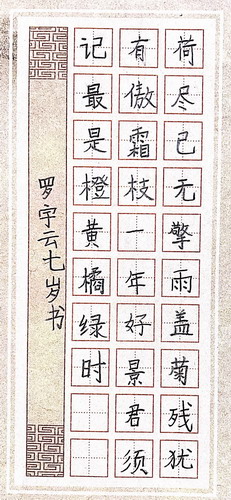 荷尽已无擎雨盖菊残犹
有傲霜枝一年好景君须
记最是橙黄橘绿时
罗宇云七岁书